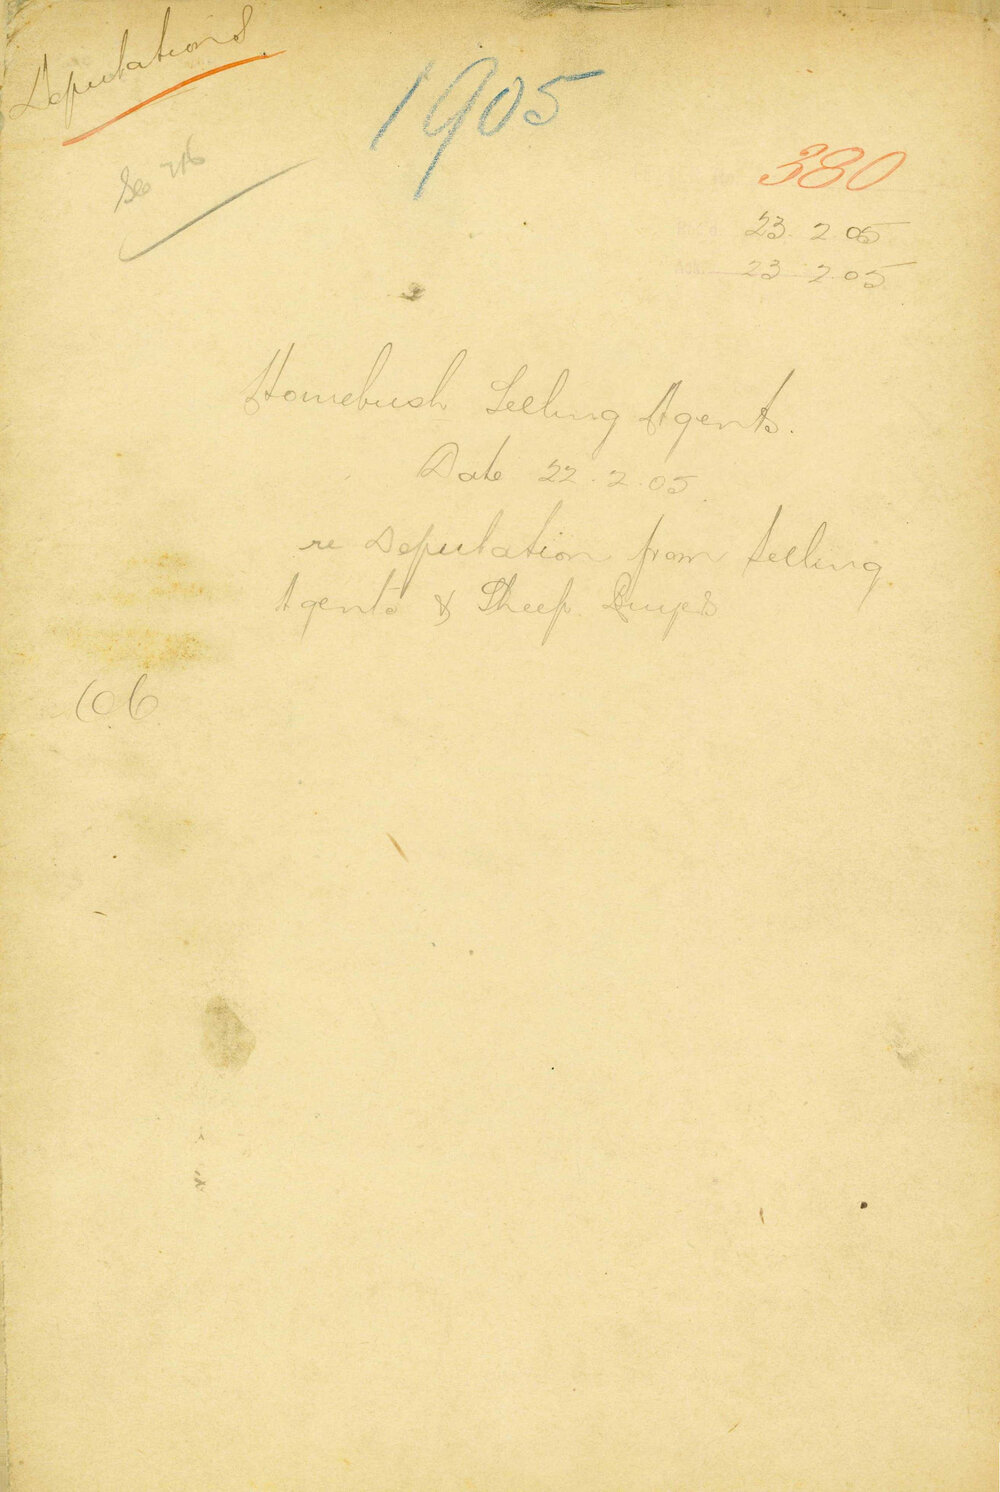 Deputations.
1905
See 716
380
23. 2. 05
23 2. 05
Homebush Selling Agents.
Date 22. 2. 05.
re Deputation from Selling
Agents & Sheep Buyers
106